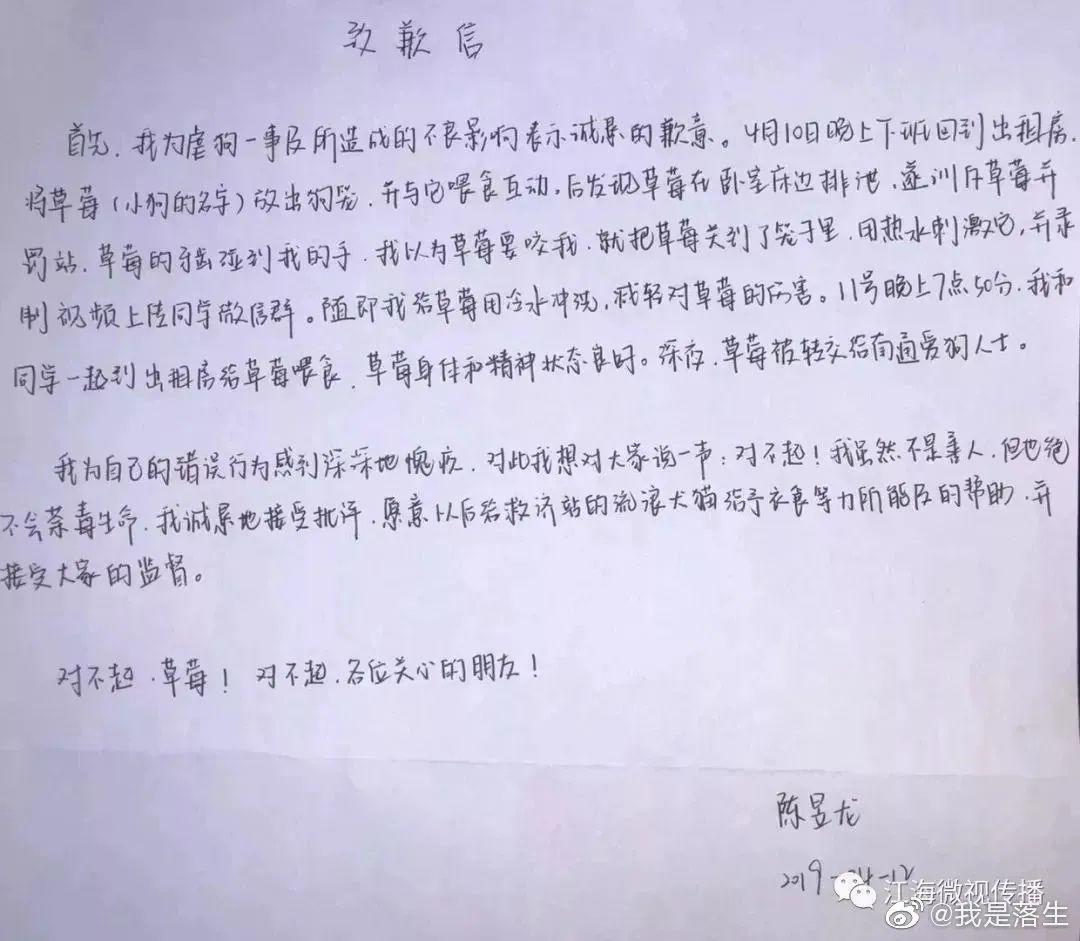 致歉信
首先，我为虐狗一事及所造成的不良影响表示诚恳的歉意。4月10日晚上下班回到出租房，
将草莓（小狗的名字）放出狗笼，并与它喂食互动，后发现草莓在卧室床边排泄，遂训斥草莓并
罚站，草莓的牙齿碰到我的手，我以为草莓要咬我，就把草莓关到了笼子里，用热水刺激它，并录
制视频上传同学微信群。随即我给草莓用冷水冲洗，减轻对草莓的伤害。11号晚上7点50分，我和
同学一起到出租房给草莓喂食，草莓身体和精神状态良好。深夜，草莓被转交给南通爱狗人士。
我为自己的错误行为感到深深地愧疚，对此我想对大家说一声：对不起！我虽然不是善人，但也绝
不会荼毒生命，我诚恳地接受批评，愿意以后给救济站的流浪犬猫给予衣食等力所能及的帮助，并
接受大家的监督。
对不起，草莓！对不起，各位关心的朋友！
陈昱龙
2019-04-12
江海微视传播
@我是落生